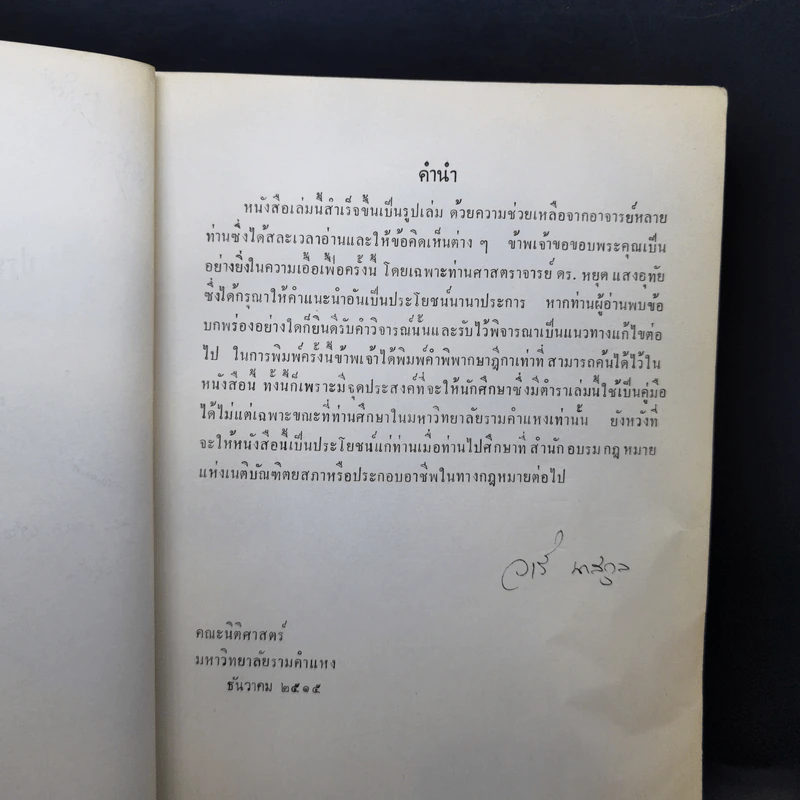 คำนำ
หนังสือเล่มนี้สำเร็จขึ้นเป็นรูปเล่ม ด้วยความช่วยเหลือจากอาจารย์หลาย
ท่านซึ่งได้สละเวลาอ่านและให้ข้อคิดเห็นต่าง ๆ ข้าพเจ้าขอขอบพระคุณเป็น
อย่างยิ่งในความเอื้อเฟื้อครั้งนี้ โดยเฉพาะท่านศาสตราจารย์ ดร. หยุด แสงอุทัย
ซึ่งได้กรุณาให้คำแนะนำอันเป็นประโยชน์นานาประการ หากท่านผู้อ่านพบข้อ
บกพร่องอย่างใดก็ยินดีรับคำวิจารณ์นั้นและรับไว้พิจารณาเป็นแนวทางแก้ไขต่อ
ไป ในการพิมพ์ครั้งนี้ข้าพเจ้าได้พิมพ์คำพิพากษาฎีกาเท่าที่ สามารถค้นได้ไว้ใน
หนังสือนี้ ทั้งนี้ก็เพราะมีจุดประสงค์ที่จะให้นักศึกษาซึ่งมีตำราเล่มนี้ใช้เป็นคู่มือ
ได้ไม่แต่เฉพาะขณะที่ท่านศึกษาในมหาวิทยาลัยรามคำแหงเท่านั้น ยังหวังที่
จะให้หนังสือนี้เป็นประโยชน์แก่ท่านเมื่อท่านไปศึกษาที่ สำนักอบรมกฎหมาย
แห่งเนติบัณฑิตยสภาหรือประกอบอาชีพในทางกฎหมายต่อไป
คณะนิติศาสตร์
มหาวิทยาลัยรามคำแหง
ธันวาคม ๒๕๑๕